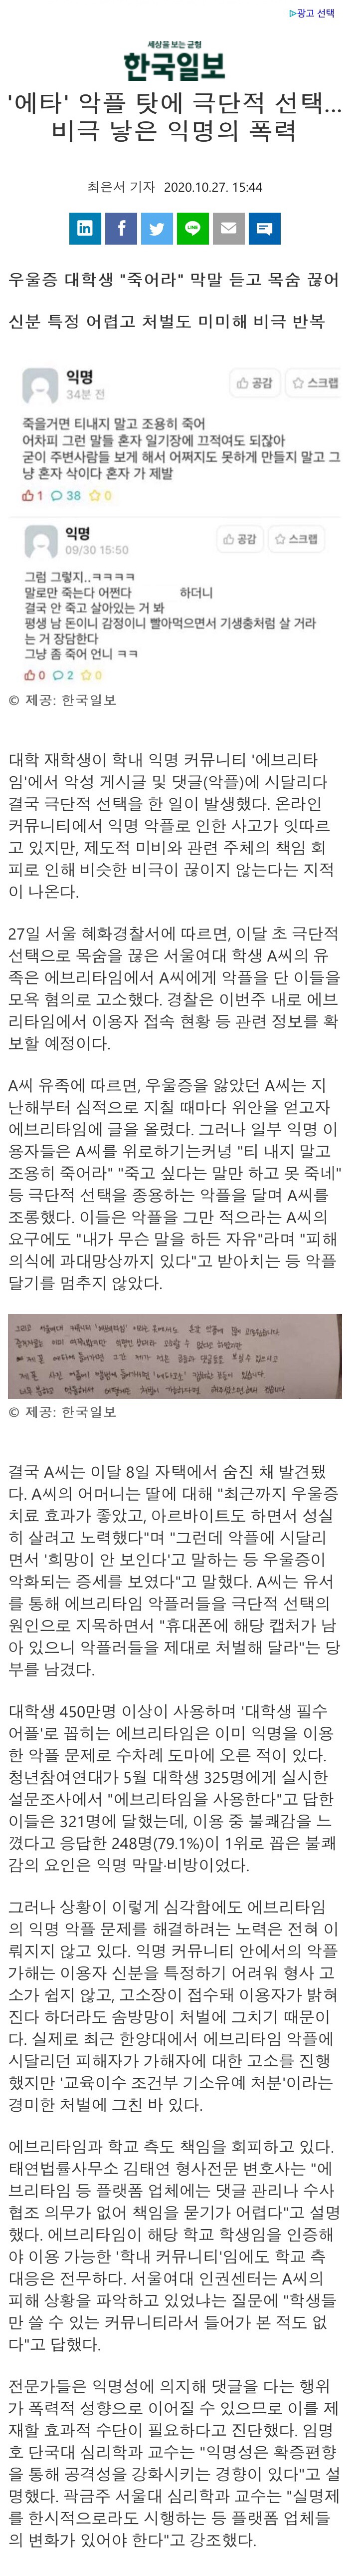 광고 선택
세상을 보는 균형
한국일보
'에타' 악플 탓에 극단적 선택...
비극 낳은 익명의 폭력
최은서 기자 2020.10.27. 15:44
우울증 대학생 "죽어라" 막말 듣고 목숨 끊어
신분 특정 어렵고 처벌도 미미해 비극 반복
익명
34분 전
공감
스크랩
죽을거면 티내지 말고 조용히 죽어
어차피 그런 말들 혼자 일기장에 끄적여도 되잖아
굳이 주변사람들 보게 해서 어쩌지도 못하게 만들지 말고 그
냥 혼자 삭이다 혼자 가 제발
1 38 0
익명
09/30 15:50
공감
스크랩
그럼 그렇지..ㅋㅋㅋㅋ
말로만 죽는다 어쩐다 하더니
결국 안 죽고 살아있는 거 봐
평생 남 돈이니 감정이니 빨아먹으면서 기생충처럼 살 거라
는 거 장담한다
그냥 좀 죽어 언니 ㅋㅋ
0 2 0
© 제공: 한국일보
대학 재학생이 학내 익명 커뮤니티 '에브리타
임'에서 악성 게시글 및 댓글(악플)에 시달리다
결국 극단적 선택을 한 일이 발생했다. 온라인
커뮤니티에서 익명 악플로 인한 사고가 잇따르
고 있지만, 제도적 미비와 관련 주체의 책임 회
피로 인해 비슷한 비극이 끊이지 않는다는 지적
이 나온다.
27일 서울 혜화경찰서에 따르면, 이달 초 극단적
선택으로 목숨을 끊은 서울여대 학생 A씨의 유
족은 에브리타임에서 A씨에게 악플을 단 이들을
모욕 혐의로 고소했다. 경찰은 이번주 내로 에브
리타임에서 이용자 접속 현황 등 관련 정보를 확
보할 예정이다.
A씨 유족에 따르면, 우울증을 앓았던 A씨는 지
난해부터 심적으로 지칠 때마다 위안을 얻고자
에브리타임에 글을 올렸다. 그러나 일부 익명 이
용자들은 A씨를 위로하기는커녕 "티 내지 말고
조용히 죽어라" "죽고 싶다는 말만 하고 못 죽네"
등 극단적 선택을 종용하는 악플을 달며 A씨를
조롱했다. 이들은 악플을 그만 적으라는 A씨의
요구에도 "내가 무슨 말을 하든 자유"라며 "피해
의식에 과대망상까지 있다"고 받아치는 등 악플
달기를 멈추지 않았다.
© 제공: 한국일보
결국 A씨는 이달 8일 자택에서 숨진 채 발견됐
다. A씨의 어머니는 딸에 대해 "최근까지 우울증
치료 효과가 좋았고, 아르바이트도 하면서 성실
히 살려고 노력했다"며 "그런데 악플에 시달리
면서 '희망이 안 보인다'고 말하는 등 우울증이
악화되는 증세를 보였다"고 말했다. A씨는 유서
를 통해 에브리타임 악플러들을 극단적 선택의
원인으로 지목하면서 "휴대폰에 해당 캡처가 남
아 있으니 악플러들을 제대로 처벌해 달라"는 당
부를 남겼다.
대학생 450만명 이상이 사용하며 '대학생 필수
어플'로 꼽히는 에브리타임은 이미 익명을 이용
한 악플 문제로 수차례 도마에 오른 적이 있다.
청년참여연대가 5월 대학생 325명에게 실시한
설문조사에서 "에브리타임을 사용한다"고 답한
이들은 321명에 달했는데, 이용 중 불쾌감을 느
꼈다고 응답한 248명(79.1%)이 1위로 꼽은 불쾌
감의 요인은 익명 막말·비방이었다.
그러나 상황이 이렇게 심각함에도 에브리타임
의 익명 악플 문제를 해결하려는 노력은 전혀 이
뤄지지 않고 있다. 익명 커뮤니티 안에서의 악플
가해는 이용자 신분을 특정하기 어려워 형사 고
소가 쉽지 않고, 고소장이 접수돼 이용자가 밝혀
진다 하더라도 솜방망이 처벌에 그치기 때문이
다. 실제로 최근 한양대에서 에브리타임 악플에
시달리던 피해자가 가해자에 대한 고소를 진행
했지만 '교육이수 조건부 기소유예 처분'이라는
경미한 처벌에 그친 바 있다.
에브리타임과 학교 측도 책임을 회피하고 있다.
태연법률사무소 김태연 형사전문 변호사는 "에
브리타임 등 플랫폼 업체에는 댓글 관리나 수사
협조 의무가 없어 책임을 묻기가 어렵다"고 설명
했다. 에브리타임이 해당 학교 학생임을 인증해
야 이용 가능한 '학내 커뮤니티'임에도 학교 측
대응은 전무하다. 서울여대 인권센터는 A씨의
피해 상황을 파악하고 있었냐는 질문에 "학생들
만 쓸 수 있는 커뮤니티라서 들어가 본 적도 없
다"고 답했다.
전문가들은 익명성에 의지해 댓글을 다는 행위
가 폭력적 성향으로 이어질 수 있으므로 이를 제
재할 효과적 수단이 필요하다고 진단했다. 임명
호 단국대 심리학과 교수는 "익명성은 확증편향
을 통해 공격성을 강화시키는 경향이 있다"고 설
명했다. 곽금주 서울대 심리학과 교수는 "실명제
를 한시적으로라도 시행하는 등 플랫폼 업체들
의 변화가 있어야 한다"고 강조했다.